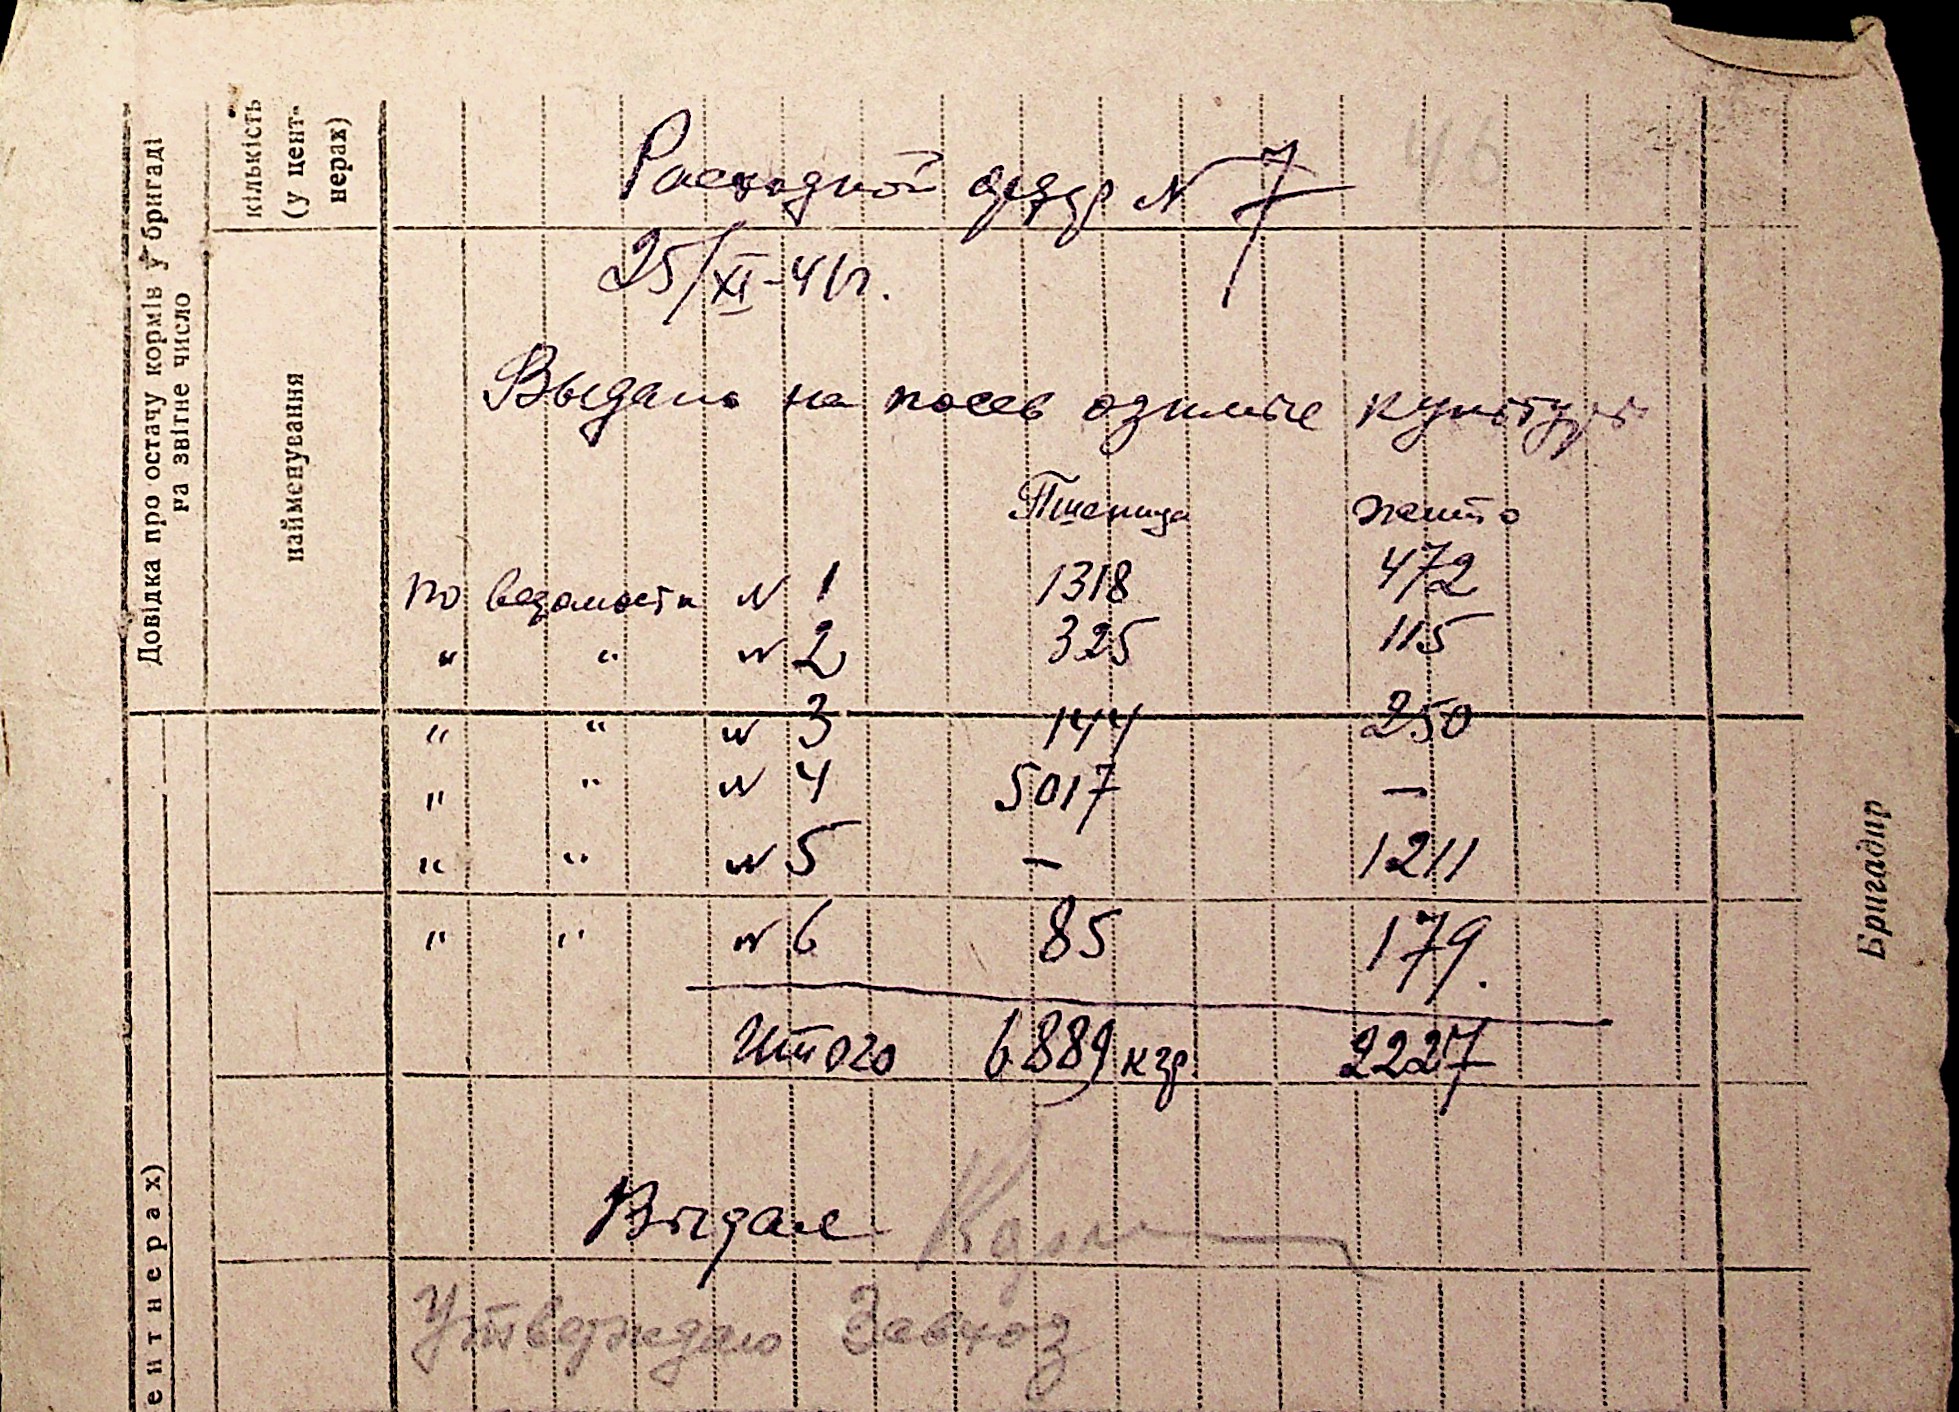 Расходной ордер № 7
46
25/XI-41г.
Выдано на посев озимые культуры
Пшеница жито
по ведомости № 1 1318 472
" " № 2 325 115
" " № 3 144 250
" " № 4 5017 –
" " № 5 – 1211
" " № 6 85 179.
Итого 6889 кгр. 2227
Выдал
Утверждаю Завхоз
Довідка про остачу кормів у бригаді
на звітне число
кількість
(у цент-
нерах)
найменування
ентнерах)
Бригадир